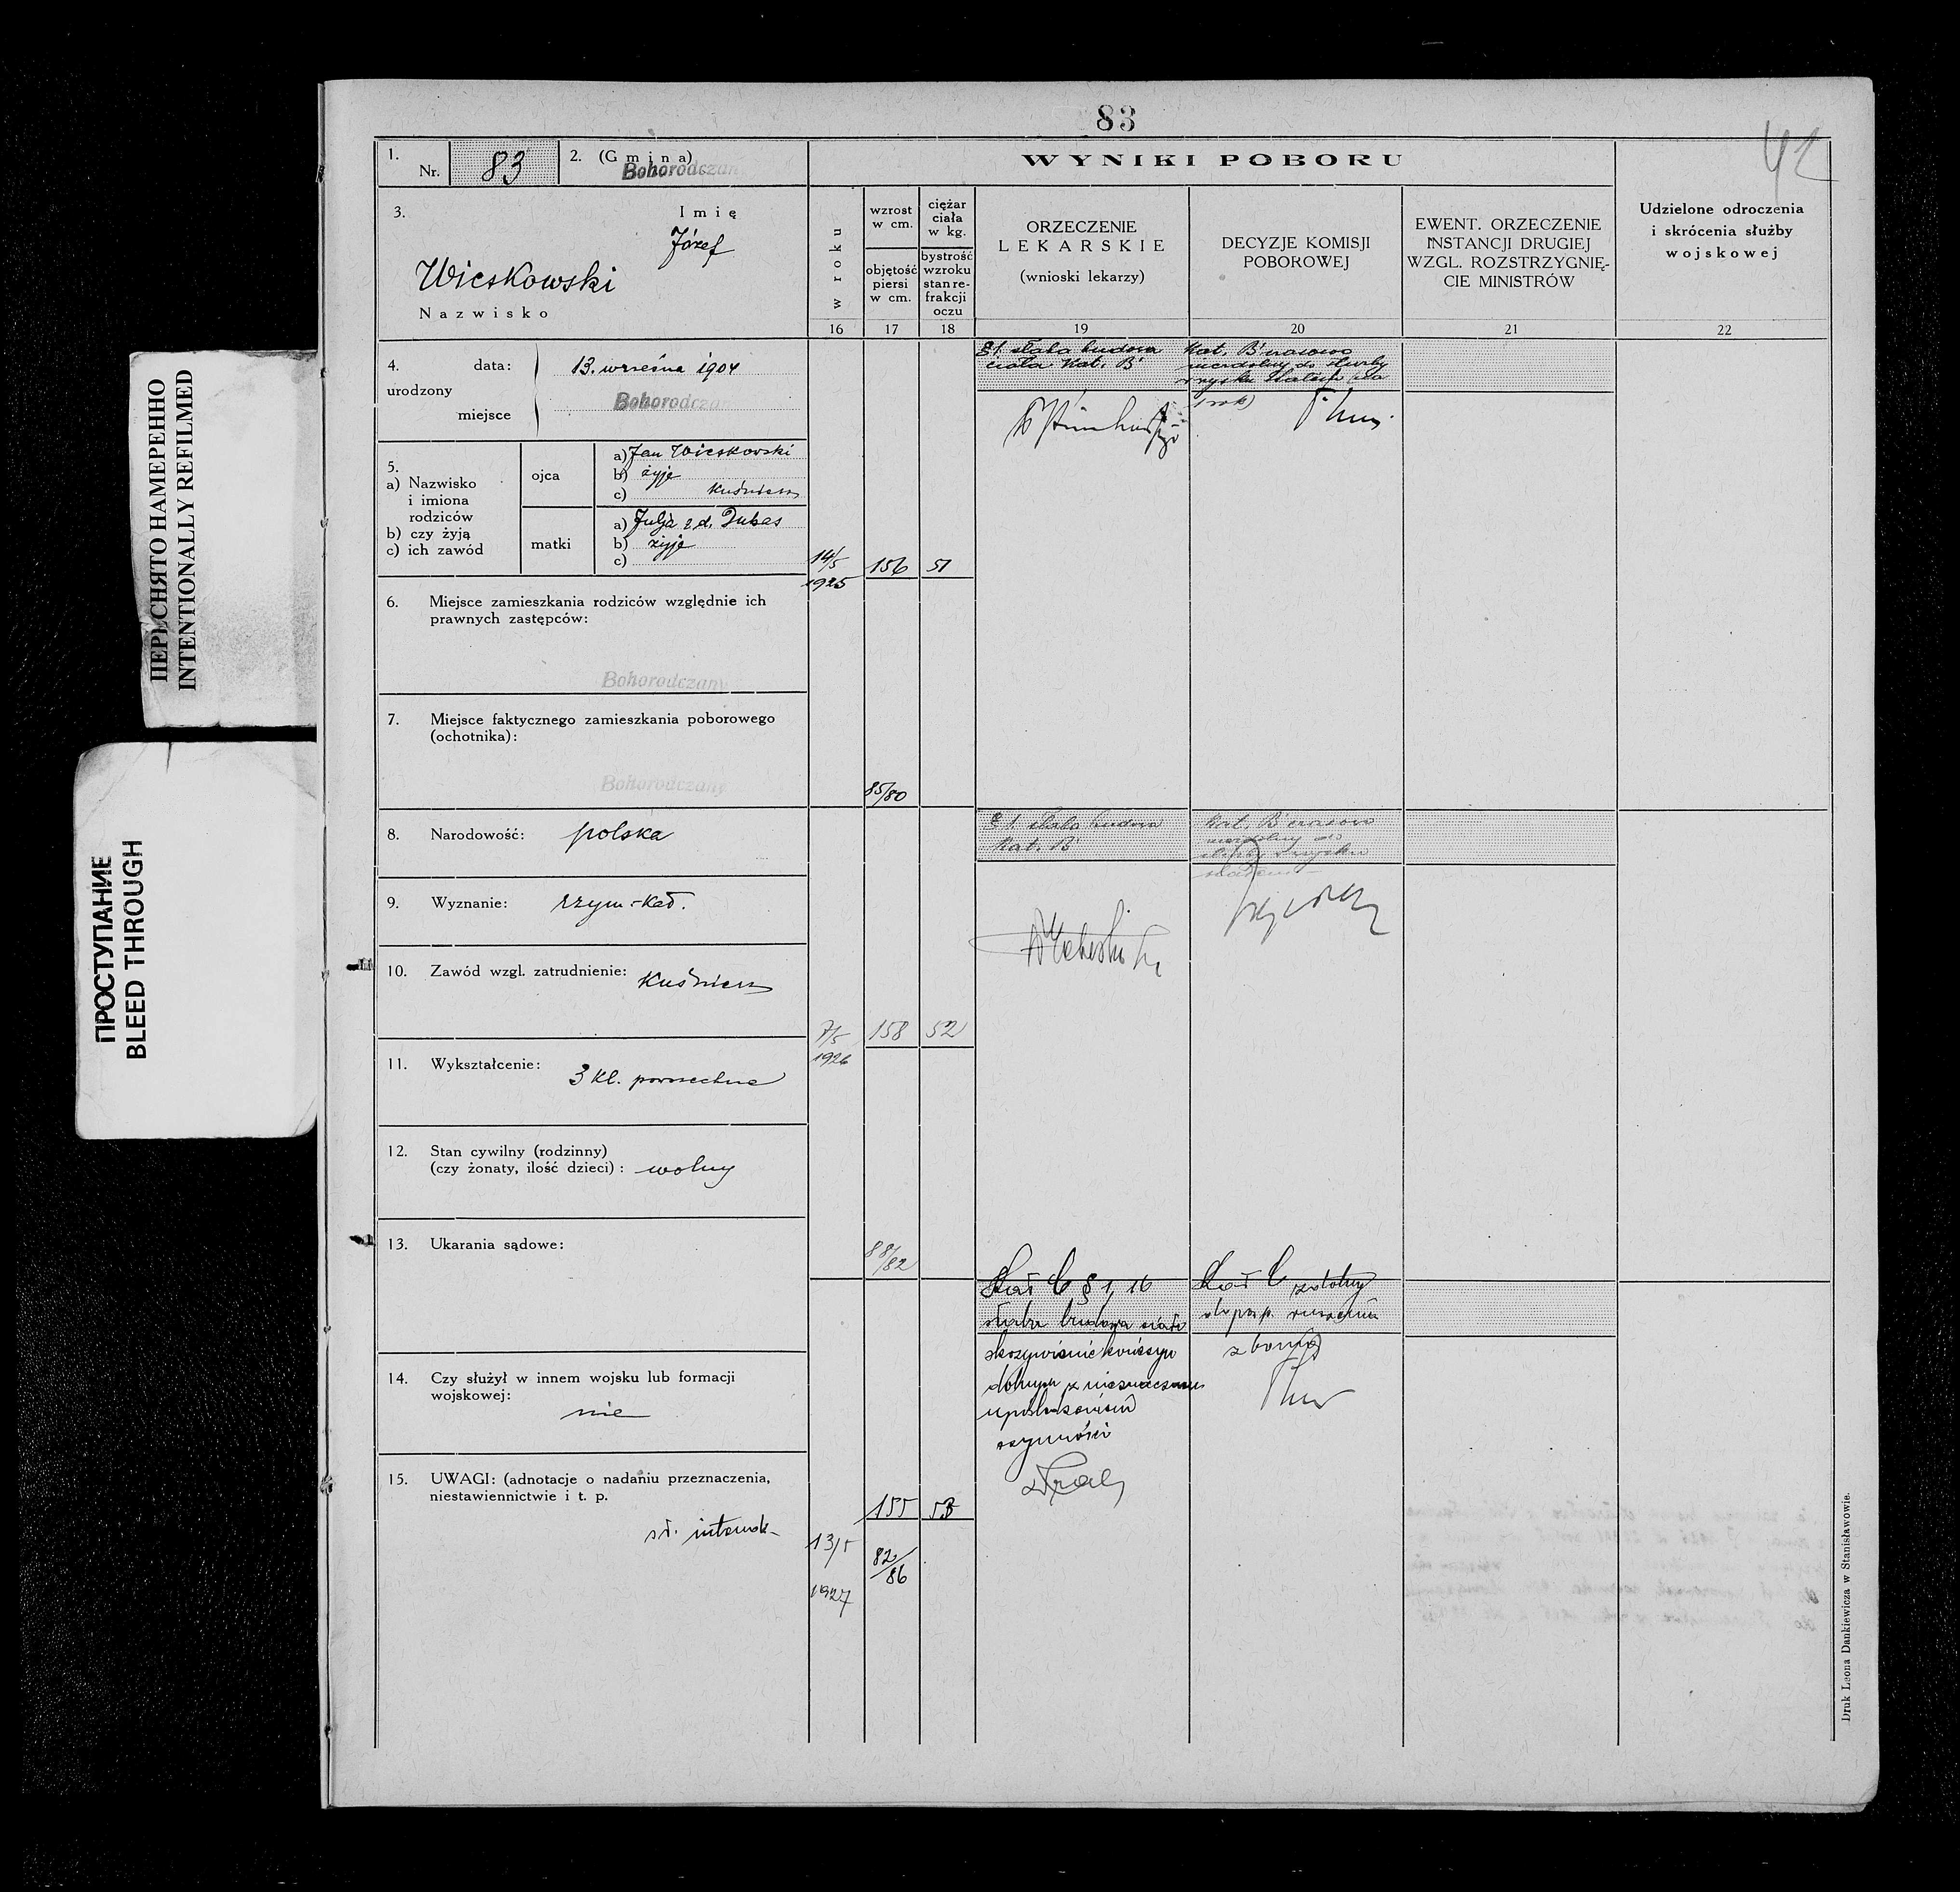 83
42
1. Nr. 83
2. (Gmina) Bohorodczany
3. Imię
Józef
Wieskowski
Nazwisko
4. urodzony
data: 13. września 1904
miejsce Bohorodczany
5.
a) Nazwisko i imiona rodziców
b) czy żyją
c) ich zawód
ojca
a) Jan Wieskowski
b) żyje
c) kuśnierz
matki
a) Julja z d. Dubas
b) żyje
c)
6. Miejsce zamieszkania rodziców względnie ich
prawnych zastępców:
Bohorodczany
7. Miejsce faktycznego zamieszkania poborowego
(ochotnika):
Bohorodczany
8. Narodowość: polska
9. Wyznanie: rzym-kat.
10. Zawód wzgl. zatrudnienie: kuśnierz
11. Wykształcenie: 3 kl. powszechne
12. Stan cywilny (rodzinny)
(czy żonaty, ilość dzieci): wolny
13. Ukarania sądowe:
14. Czy służył w innem wojsku lub formacji
wojskowej:
nie
15. UWAGI: (adnotacje o nadaniu przeznaczenia,
niestawiennictwie i t. p.
WYNIKI POBORU
w roku
16
wzrost
w cm.
objętość
piersi
w cm.
17
ciężar
ciała
w kg.
bystrość
wzroku
stan re-
frakcji
oczu
18
ORZECZENIE
LEKARSKIE
(wnioski lekarzy)
19
DECYZJE KOMISJI
POBOROWEJ
20
EWENT. ORZECZENIE
INSTANCJI DRUGIEJ
WZGL. ROZSTRZYGNIĘ-
CIE MINISTRÓW
21
Udzielone odroczenia
i skrócenia służby
wojskowej
22
14/5
1925
156
51
85/80
§1. słaba budowa
ciała Kat. B
Kat. B czasowo
niezdolny do służby
1 rok)
7/5
1926
158
52
88/82
§1 słaba budowa
Kat. B
Kat. B czasowo
niezdolny do
13/5
1927
155
53
82/86
Kat C § 1, 16
słaba budowa ciała
skrzywienie kończyn
dolnych z nieznacznem
upośledzeniem
czynności
Kat C zdolny
do posp. ruszenia
z bronią
Druk Leona Dankiewicza w Stanisławowie.
ПЕРЕСНЯТО НАМЕРЕННО
INTENTIONALLY REFILMED
ПРОСТУПАНИЕ
BLEED THROUGH